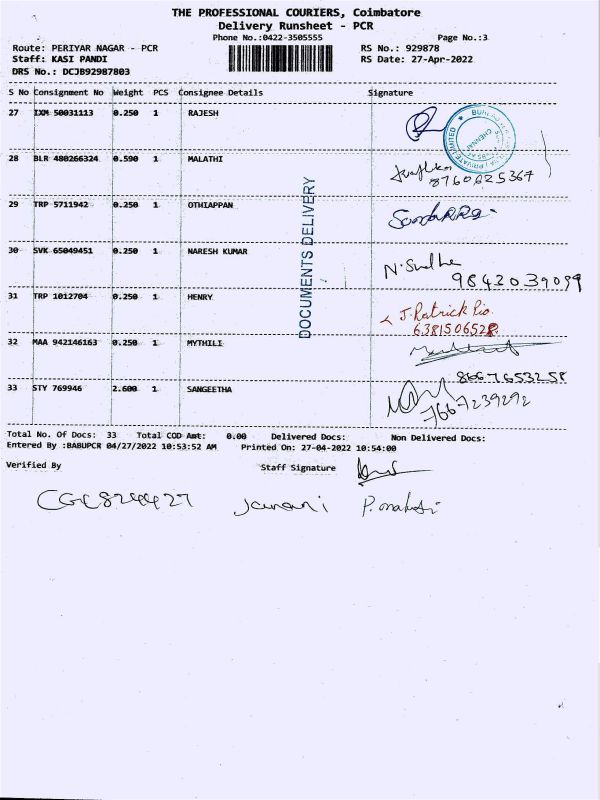 THE PROFESSIONAL COURIERS, Coimbatore
Delivery Runsheet - PCR
Phone No.:0422-3505555 Page No.:3
Route: PERIYAR NAGAR - PCR RS No.: 929878
Staff: KASI PANDI RS Date: 27-Apr-2022
DRS No.: DCJB92987803
S No Consignment No Weight PCS Consignee Details Signature
27 IXM 50031113 0.250 1 RAJESH
28 BLR 480266324 0.590 1 MALATHI
8760625367
29 TRP 5711942 0.250 1 OTHIAPPAN
30 SVK 65049451 0.250 1 NARESH KUMAR
9842039099
31 TRP 1012704 0.250 1 HENRY J. Patrick Pio.
6381506528
32 MAA 942146163 0.250 1 MYTHILI
8667653258
33 STY 769946 2.600 1 SANGEETHA
7667239292
DOCUMENTS DELIVERY
Total No. Of Docs: 33 Total COD Amt: 0.00 Delivered Docs: Non Delivered Docs:
Entered By :BABUPCR 04/27/2022 10:53:52 AM Printed On: 27-04-2022 10:54:00
Verified By Staff Signature
Janani